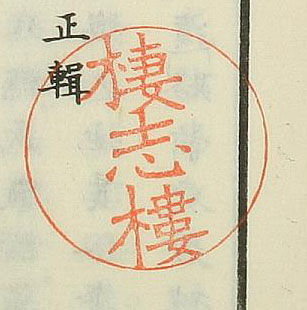 正輯
棲志樓